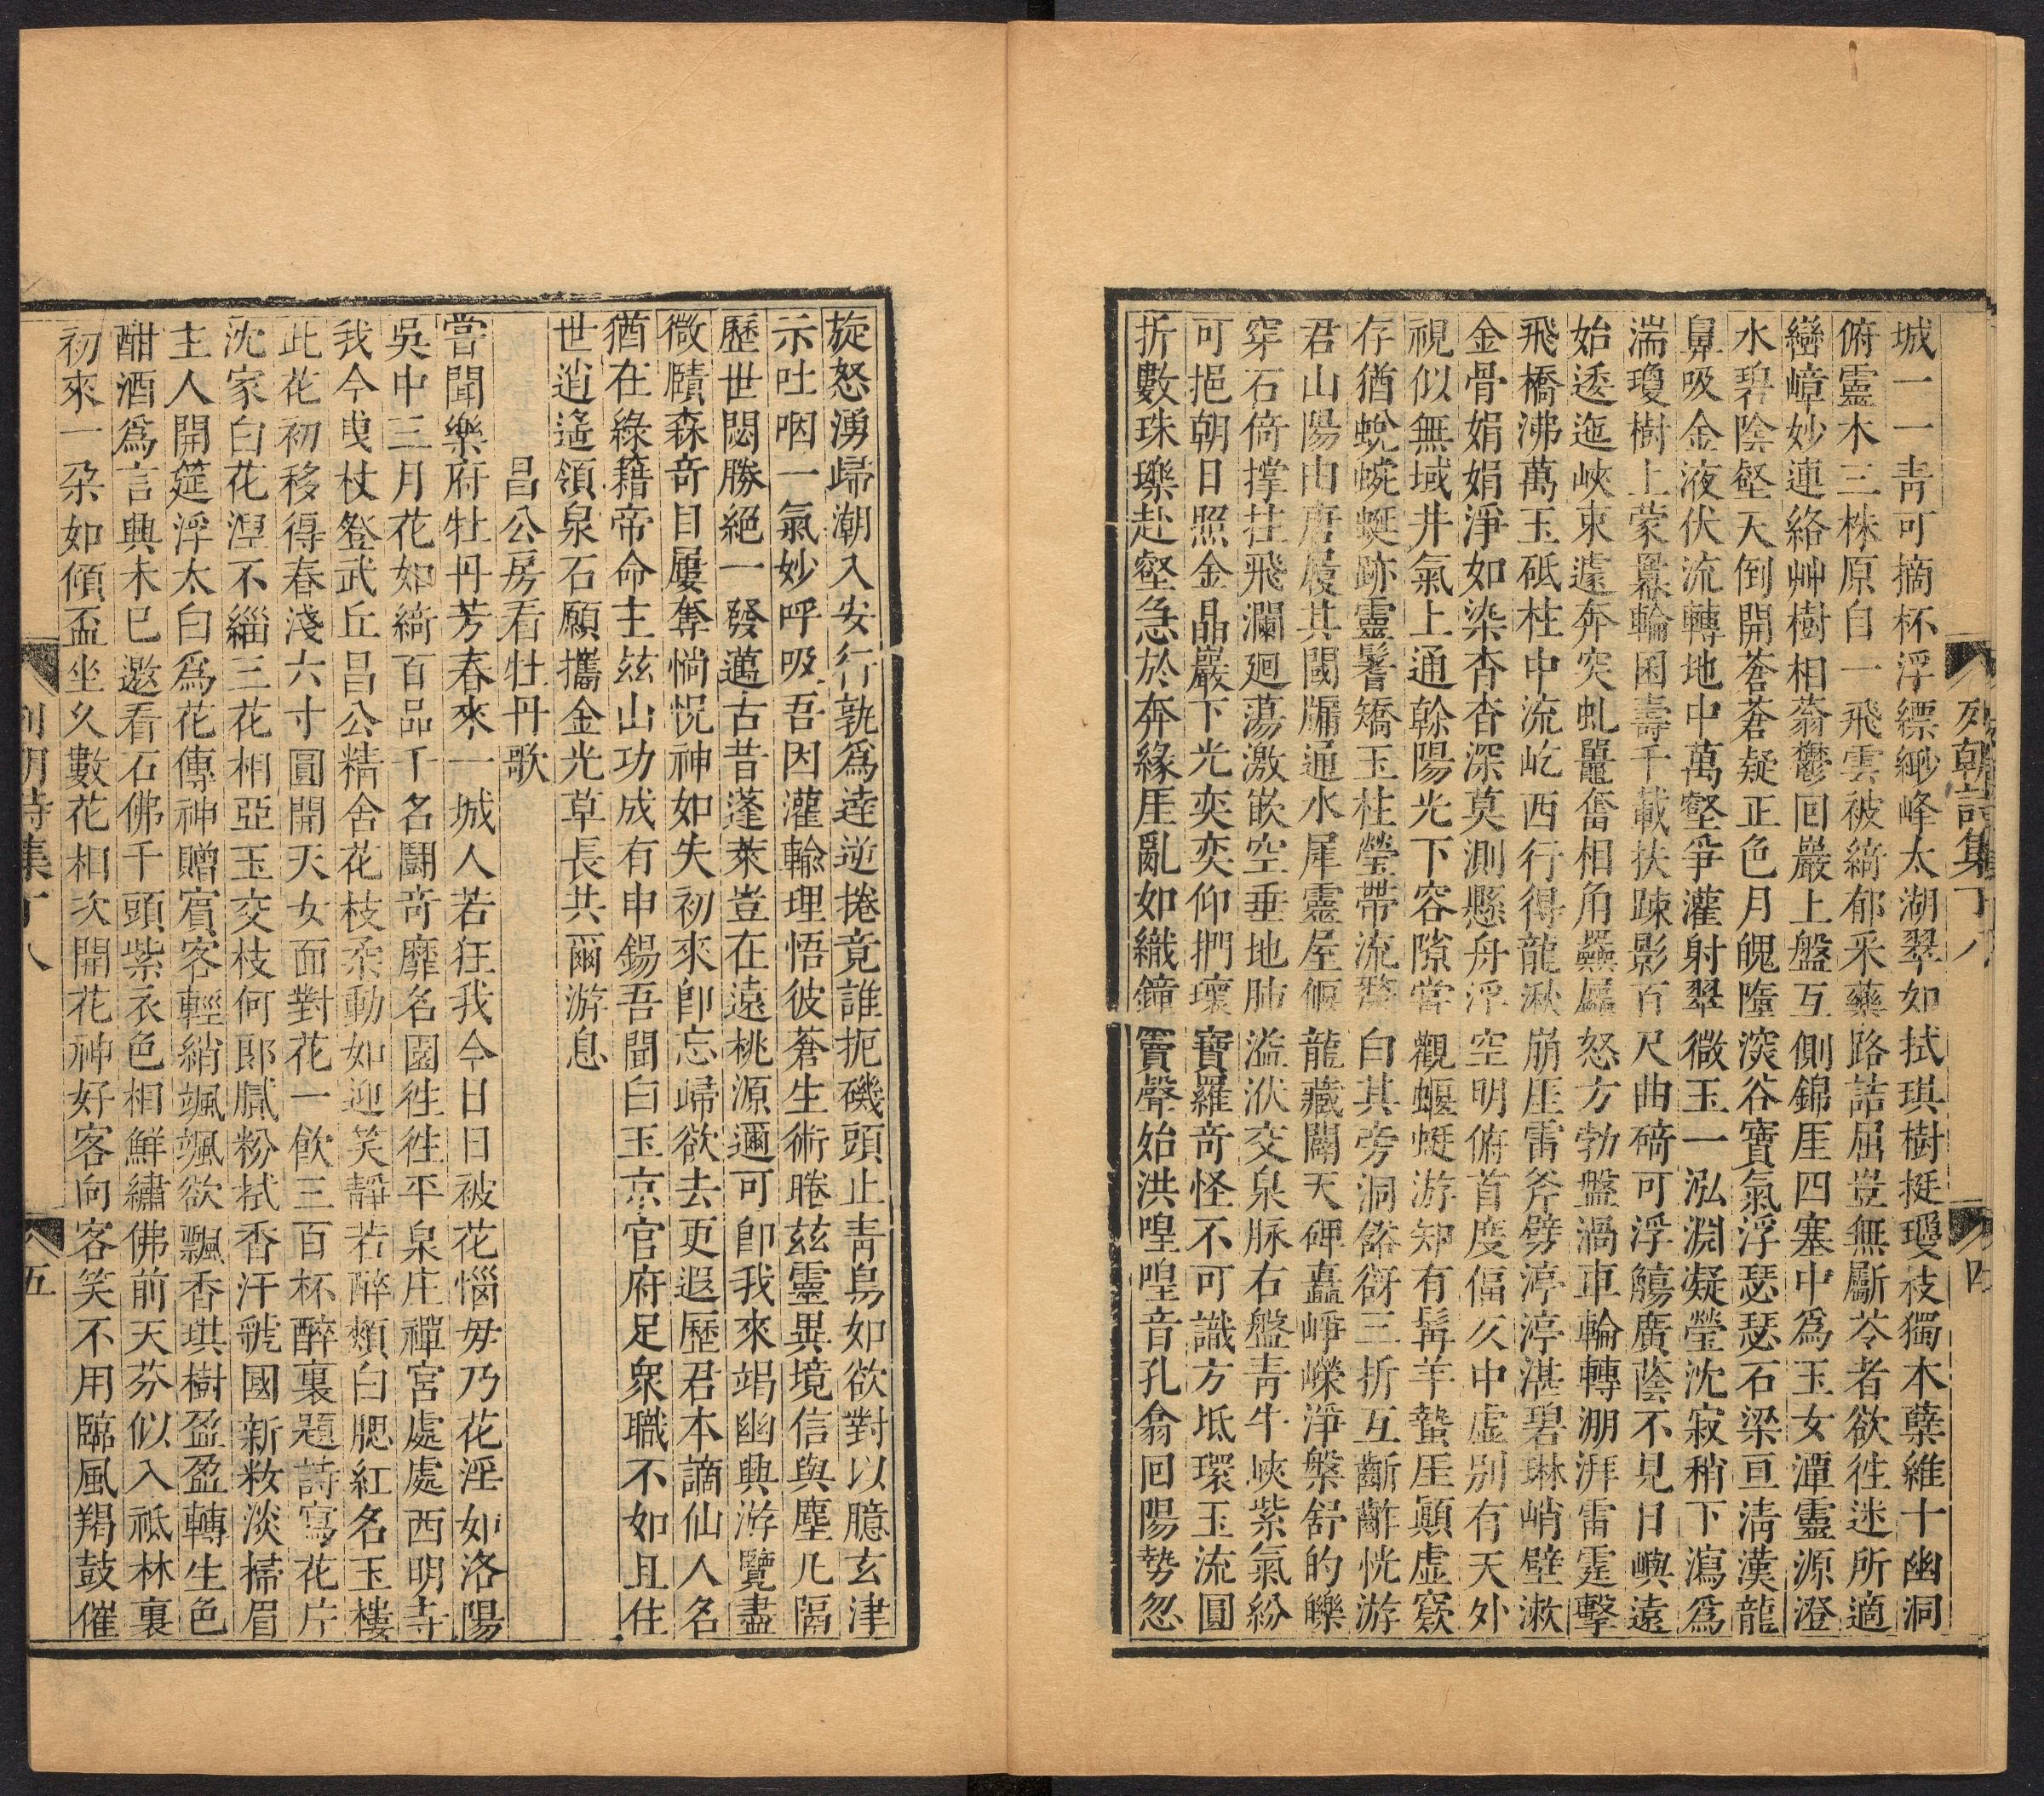 列朝詩集丁八
四
城一一青可摘杯浮縹緲峰太湖翠如拭琪樹挺璚枝獨木孽維十幽洞
俯靈木三株原自一飛雲被綺郁采藥路詰屈豈無斸苓者欲徃迷所適
巒嶂妙連絡艸樹相蓊鬱回巖上盤互側錦厓四塞中爲玉女潭靈源澄
水碧陰壑天倒開蒼蒼疑正色月魄墮㴱谷寶氣浮瑟瑟石梁亘淸漢龍
鼻吸金液伏流轉地中萬壑爭灌射翠微玉一泓淵凝瑩沈寂稍下瀉爲
湍瓊樹上蒙羃輪囷壽千載扶踈影百尺曲碕可浮觴廣蔭不見日嶼遠
始逶迤峽束遽奔突虬鼉奮相角飝屭怒方勃盤渦車輪轉淜湃雷霆擊
飛橋沸萬玉砥柱中流屹西行得龍湫崩厓雷斧劈渟渟湛碧琳峭壁漱
金骨娟娟淨如染杳杳深莫測懸舟浮空明俯首度偪仄中虛别有天外
視似無域井氣上通榦陽光下容隙嘗觀蝘蜓游知有髯羊蟄厓顚虛竅
存猶蛻蜿蜒跡靈鬐矯玉柱瑩帶流 白其旁洞谽谺三折互斷齚恍游
君山陽由唐屐其國牖通水犀靈屋偃龍藏闢天硨矗崢嶸淨槃舒的皪
穿石倚撑拄飛瀾廻蕩激嵌空垂地肺㵝洑交泉脉右盤青牛峽紫氣紛
可挹朝日照金晶巖下光奕奕仰捫壞寶羅奇怪不可識方坻環玉流圓
折數珠瓅赴壑急於奔緣厓亂如織鐘䆷聲始洪喤喤音孔翕回陽勢忽
旋怒湧歸潮入安行孰爲逹逆捲竟誰扼磯頭止青鳥如欲對以臆玄津
示吐咽一氣妙呼吸吾因灌輸理悟彼蒼生術睠兹靈異境信與塵凡隔
歷世閟勝絕一發邁古昔蓬萊豈在遠桃源邇可卽我來竭幽興游覽盡
微賾森奇目屢奪惝怳神如失初來卽忘歸欲去更遐歷君本謫仙人名
猶在綠籍帝命主兹山功成有申錫吾聞白玉京官府足衆職不如且住
世逍遙領泉石願攜金光草長共爾游息
昌公房看牡丹歌
嘗聞樂府牡丹芳春來一城人若狂我今日日被花惱毋乃花淫如洛陽
吳中三月花如綺百品千名鬬奇靡名園徃徃平泉庄禪宮處處西明寺
我今曳杖登武丘昌公精舍花枝柔動如迎笑靜若醉頰白腮紅名玉樓
此花初移得春淺六寸圓開天女面對花一飲三百杯醉裏題詩寫花片
沈家白花湼不緇三花相亞玉交枝何郎膩粉拭香汗虢國新妝淡掃眉
主人開筵浮太白爲花傳神贈賓客輕綃颯颯欲飄香琪樹盈盈轉生色
酣酒爲言興未已邀看石佛千頭紫衣色相鮮繡佛前天芬似入祇林裏
初來一朶如傾盃坐久數花相次開花神好客向客笑不用臨風羯鼓催
列朝詩集丁八
五